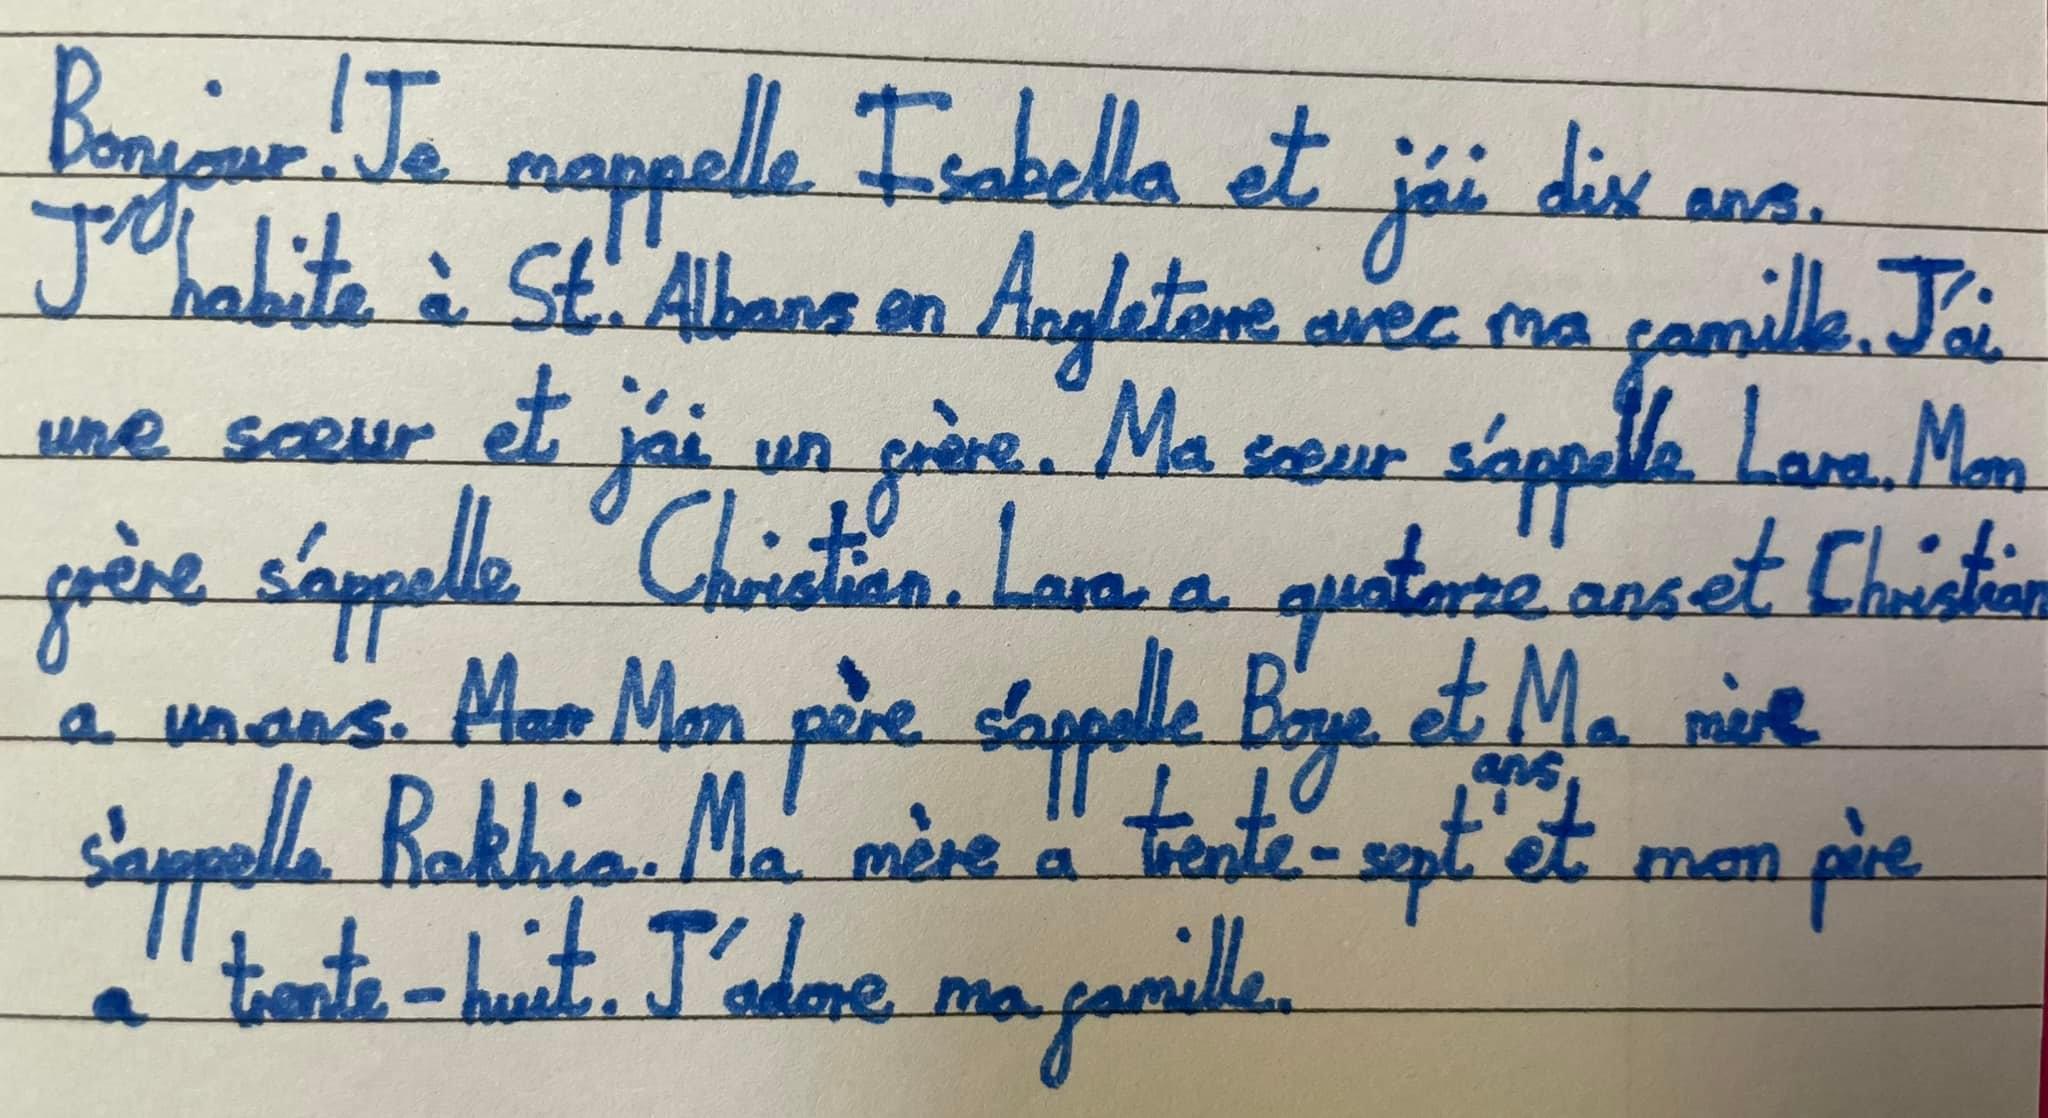 Bonjour! Je mappelle Isabella et j'ai dix ans.
J'habite à St. Albans en Angleterre avec ma famille. J'ai
une sœur et j'ai un frère. Ma sœur s'appelle Lara. Mon
frère s'appelle Christian. Lara a quatorze ans et Christian
a un ans. Mon père s'appelle Boye et Ma mère
s'appelle Rakhia. Ma mère a trente-sept ans et mon père
a trente-huit. J'adore ma famille.